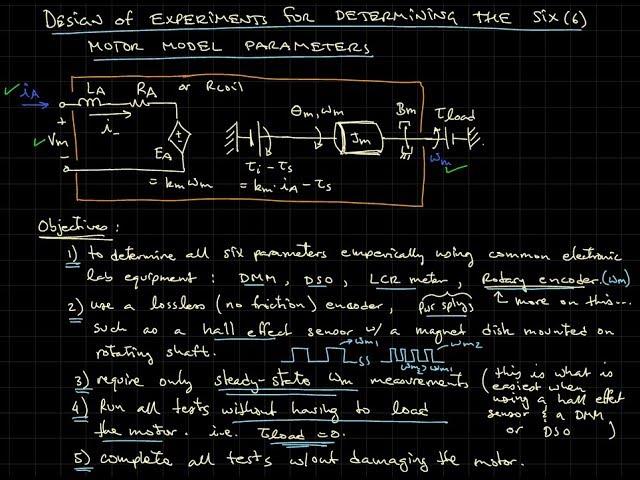 DESIGN OF EXPERIMENTS FOR DETERMINING THE SIX (6)
MOTOR MODEL PARAMETERS
iA
LA
RA or Rcoil
θm, ωm
Bm
τload
+
i
Vm
EA
Jm
-
τi - τs
ωm
= km ωm
= km · iA - τs
Objectives:
1) to determine all six parameters emperically using common electronic
lab equipment: DMM, DSO, LCR meter, Rotary encoder. (ωm)
2) use a lossless (no friction) encoder, ↑ more on this...
such as a hall effect sensor w/ a magnet disk mounted on
rotating shaft. ωm1 ωm2
ωm2 > ωm1
3) require only steady-state ωm measurements (this is what is
easiest when
using a hall effect
sensor & a DMM
or DSO)
4) Run all tests without having to load
the motor. i.e. τload = 0.
5) complete all tests w/out damaging the motor.